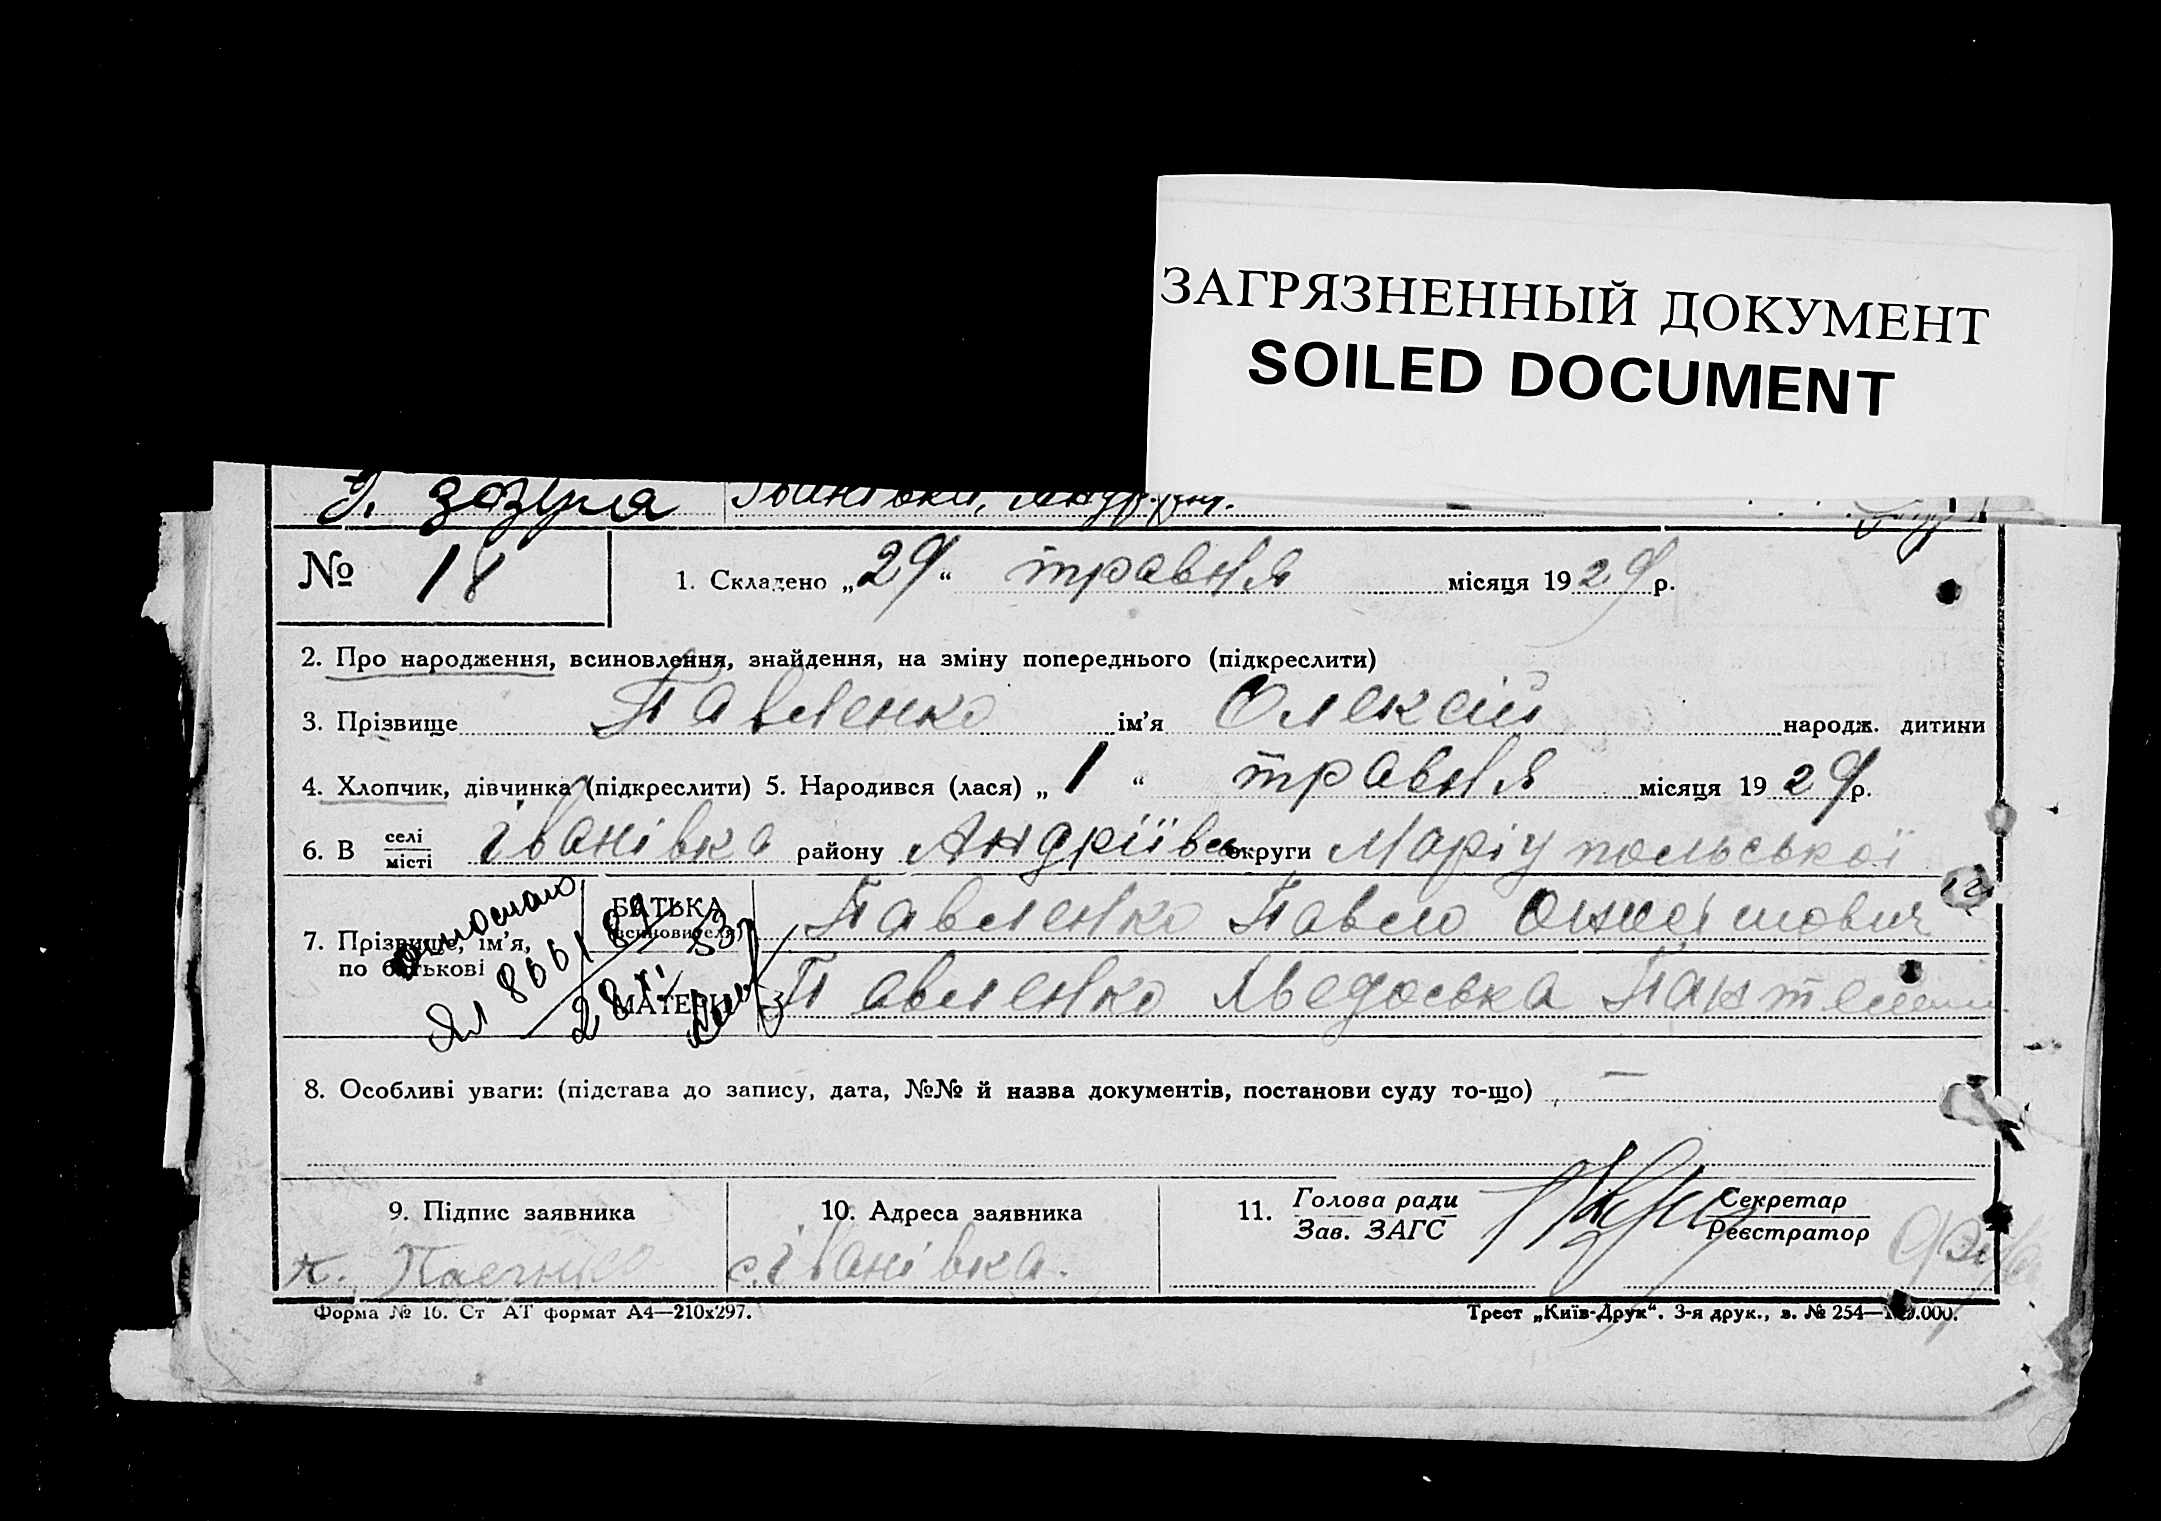 ЗАГРЯЗНЕННЫЙ ДОКУМЕНТ
SOILED DOCUMENT
зозуля
№ 18
1. Складено „29“ травня місяця 1929 р.
2. Про народження, всиновлення, знайдення, на зміну попереднього (підкреслити)
3. Прізвище Павленко ім’я Олексій народж. дитини
4. Хлопчик, дівчинка (підкреслити) 5. Народився (лася) „1“ травня місяця 1929 р.
6. В селі/місті Іванівка району Андріївсь округи Маріупольської
7. Прізвище, ім’я, по батькові
БАТЬКА (всиновителя) Павленко Павло
МАТЕРИ Павленко
8. Особливі уваги: (підстава до запису, дата, №№ й назва документів, постанови суду то-що) —
9. Підпис заявника
10. Адреса заявника
с. Іванівка.
11. Голова ради
Зав. ЗАГС
Секретар
Реєстратор
Форма № 16. Ст АТ формат А4—210х297.
Трест „Київ-Друк“. 3-я друк., в. № 254—